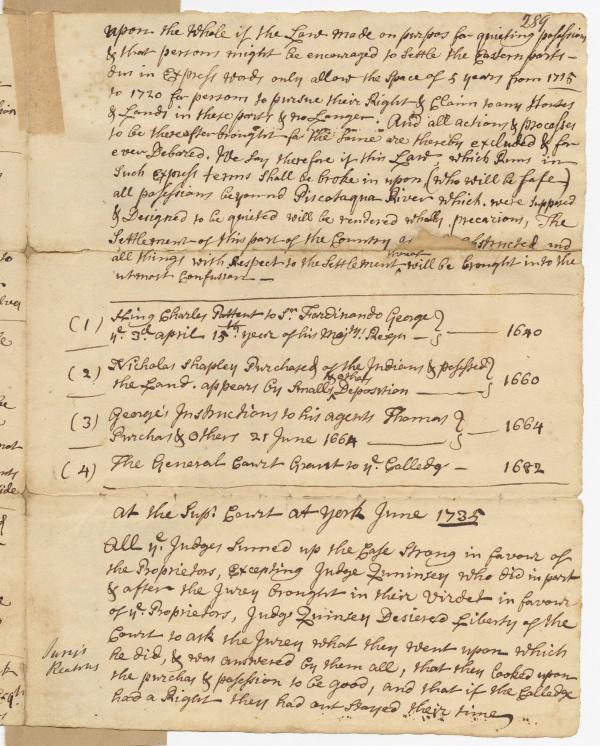 289
upon the Whole if the Law made on purpos for quieting posession
& that persons might be encouraged to Settle the Eastern parts –
did in Express words only allow the Space of 5 years from 1715
to 1720 for persons to pursue their Right & Claim to any Houses
& Lands in these parts & no Longer. And all actions & processes
to be thereafter brought for the Same are thereby excluded & for
ever Debared. We Say therefore if this Law, which Runs in
Such Express terms Shall be broke in upon (who will be Safe)
all posessions beyound Piscataqua River which were Supposed
& Designed to be quieted will be rendered wholly precarious, The
Settlement of this part of the Country obstructed and
all things with Respect to the Settlement thereof will be brought into the
utmost Confusion –
(1) King Charles Pattent to Sr. Fardinando George
ye 3d april 15th year of his Majtys Reign – 1640
(2) Nicholas Shapley Purchased of the Indians & posessed
the Land. appears by Smalls & others Deposition – 1660
(3) George's Instructions to his agents Thomas
Purchas & Others 21 June 1664 – 1664
(4) The General Court Grant to ye Colledg – 1682
At the Supr. Court at York June 1735
All ye Judges Sumed up the Case Strong in favour of
the Proprietors, Excepting Judge Quminsey who did in part
& after the Jurey brought in their Virdet in favour
of ye Proprietors, Judg Quinsey Desiered Liberty of the
Court to ask the Jurey what they went upon which
he did, & was answered by them all, that they Looked upon
the purchas & posession to be good, and that if the Colledge
had a Right they had out Stayed their time
Jury's
Reasons